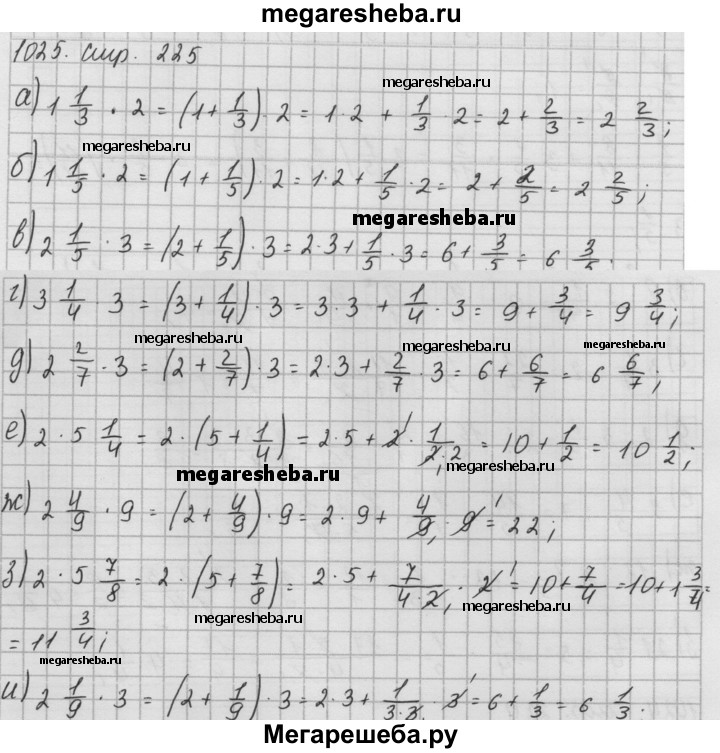 megaresheba.ru
1025. стр. 225
megaresheba.ru
а) 1 1/3 · 2 = (1 + 1/3) · 2 = 1 · 2 + 1/3 · 2 = 2 + 2/3 = 2 2/3;
megaresheba.ru
б) 1 1/5 · 2 = (1 + 1/5) · 2 = 1 · 2 + 1/5 · 2 = 2 + 2/5 = 2 2/5;
megaresheba.ru
в) 2 1/5 · 3 = (2 + 1/5) · 3 = 2 · 3 + 1/5 · 3 = 6 + 3/5 = 6 3/5.
г) 3 1/4 · 3 = (3 + 1/4) · 3 = 3 · 3 + 1/4 · 3 = 9 + 3/4 = 9 3/4;
megaresheba.ru megaresheba.ru megaresheba.ru
д) 2 2/7 · 3 = (2 + 2/7) · 3 = 2 · 3 + 2/7 · 3 = 6 + 6/7 = 6 6/7;
е) 2 · 5 1/4 = 2 · (5 + 1/4) = 2 · 5 + 2 1 · 1/(2 1 · 2) = 10 + 1/2 = 10 1/2;
megaresheba.ru megaresheba.ru
ж) 2 4/9 · 9 = (2 + 4/9) · 9 = 2 · 9 + 4/9 1 · 9 1 = 22;
з) 2 · 5 7/8 = 2 · (5 + 7/8) = 2 · 5 + 7/(4 · 2 1) · 2 1 = 10 + 7/4 = 10 + 1 3/4 =
megaresheba.ru megaresheba.ru
= 11 3/4;
megaresheba.ru
и) 2 1/9 · 3 = (2 + 1/9) · 3 = 2 · 3 + 1/(3 · 3) · 3 1 = 6 + 1/3 = 6 1/3.
Мегарешеба.ру